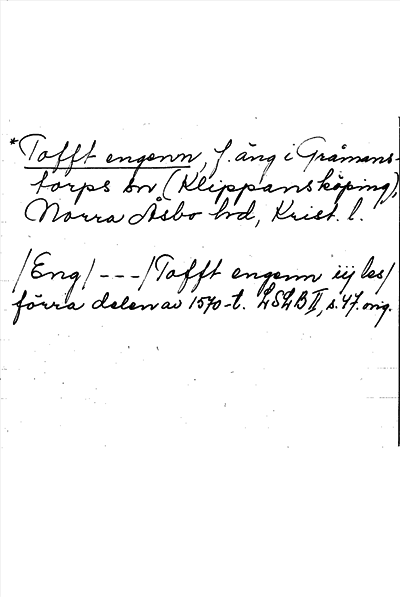 *Tofft engenn, f. äng i Gråmans-
torps sn (Klippans köping),
Norra Åsbo hd, Krist. l.
/Eng/ - - - /Tofft engenn iij les/
förra delen av 1570-t. LSLB II, s. 47. orig.